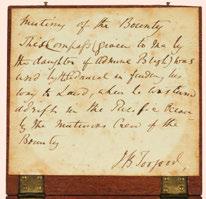 Mutiny of the Bounty
This Compass (given to me by
the daughter of Admiral Bligh) was
used by the Admiral in finding his
way to Land, when he was turned
adrift in the Pacific Ocean
by the Mutinous Crew of the
Bounty